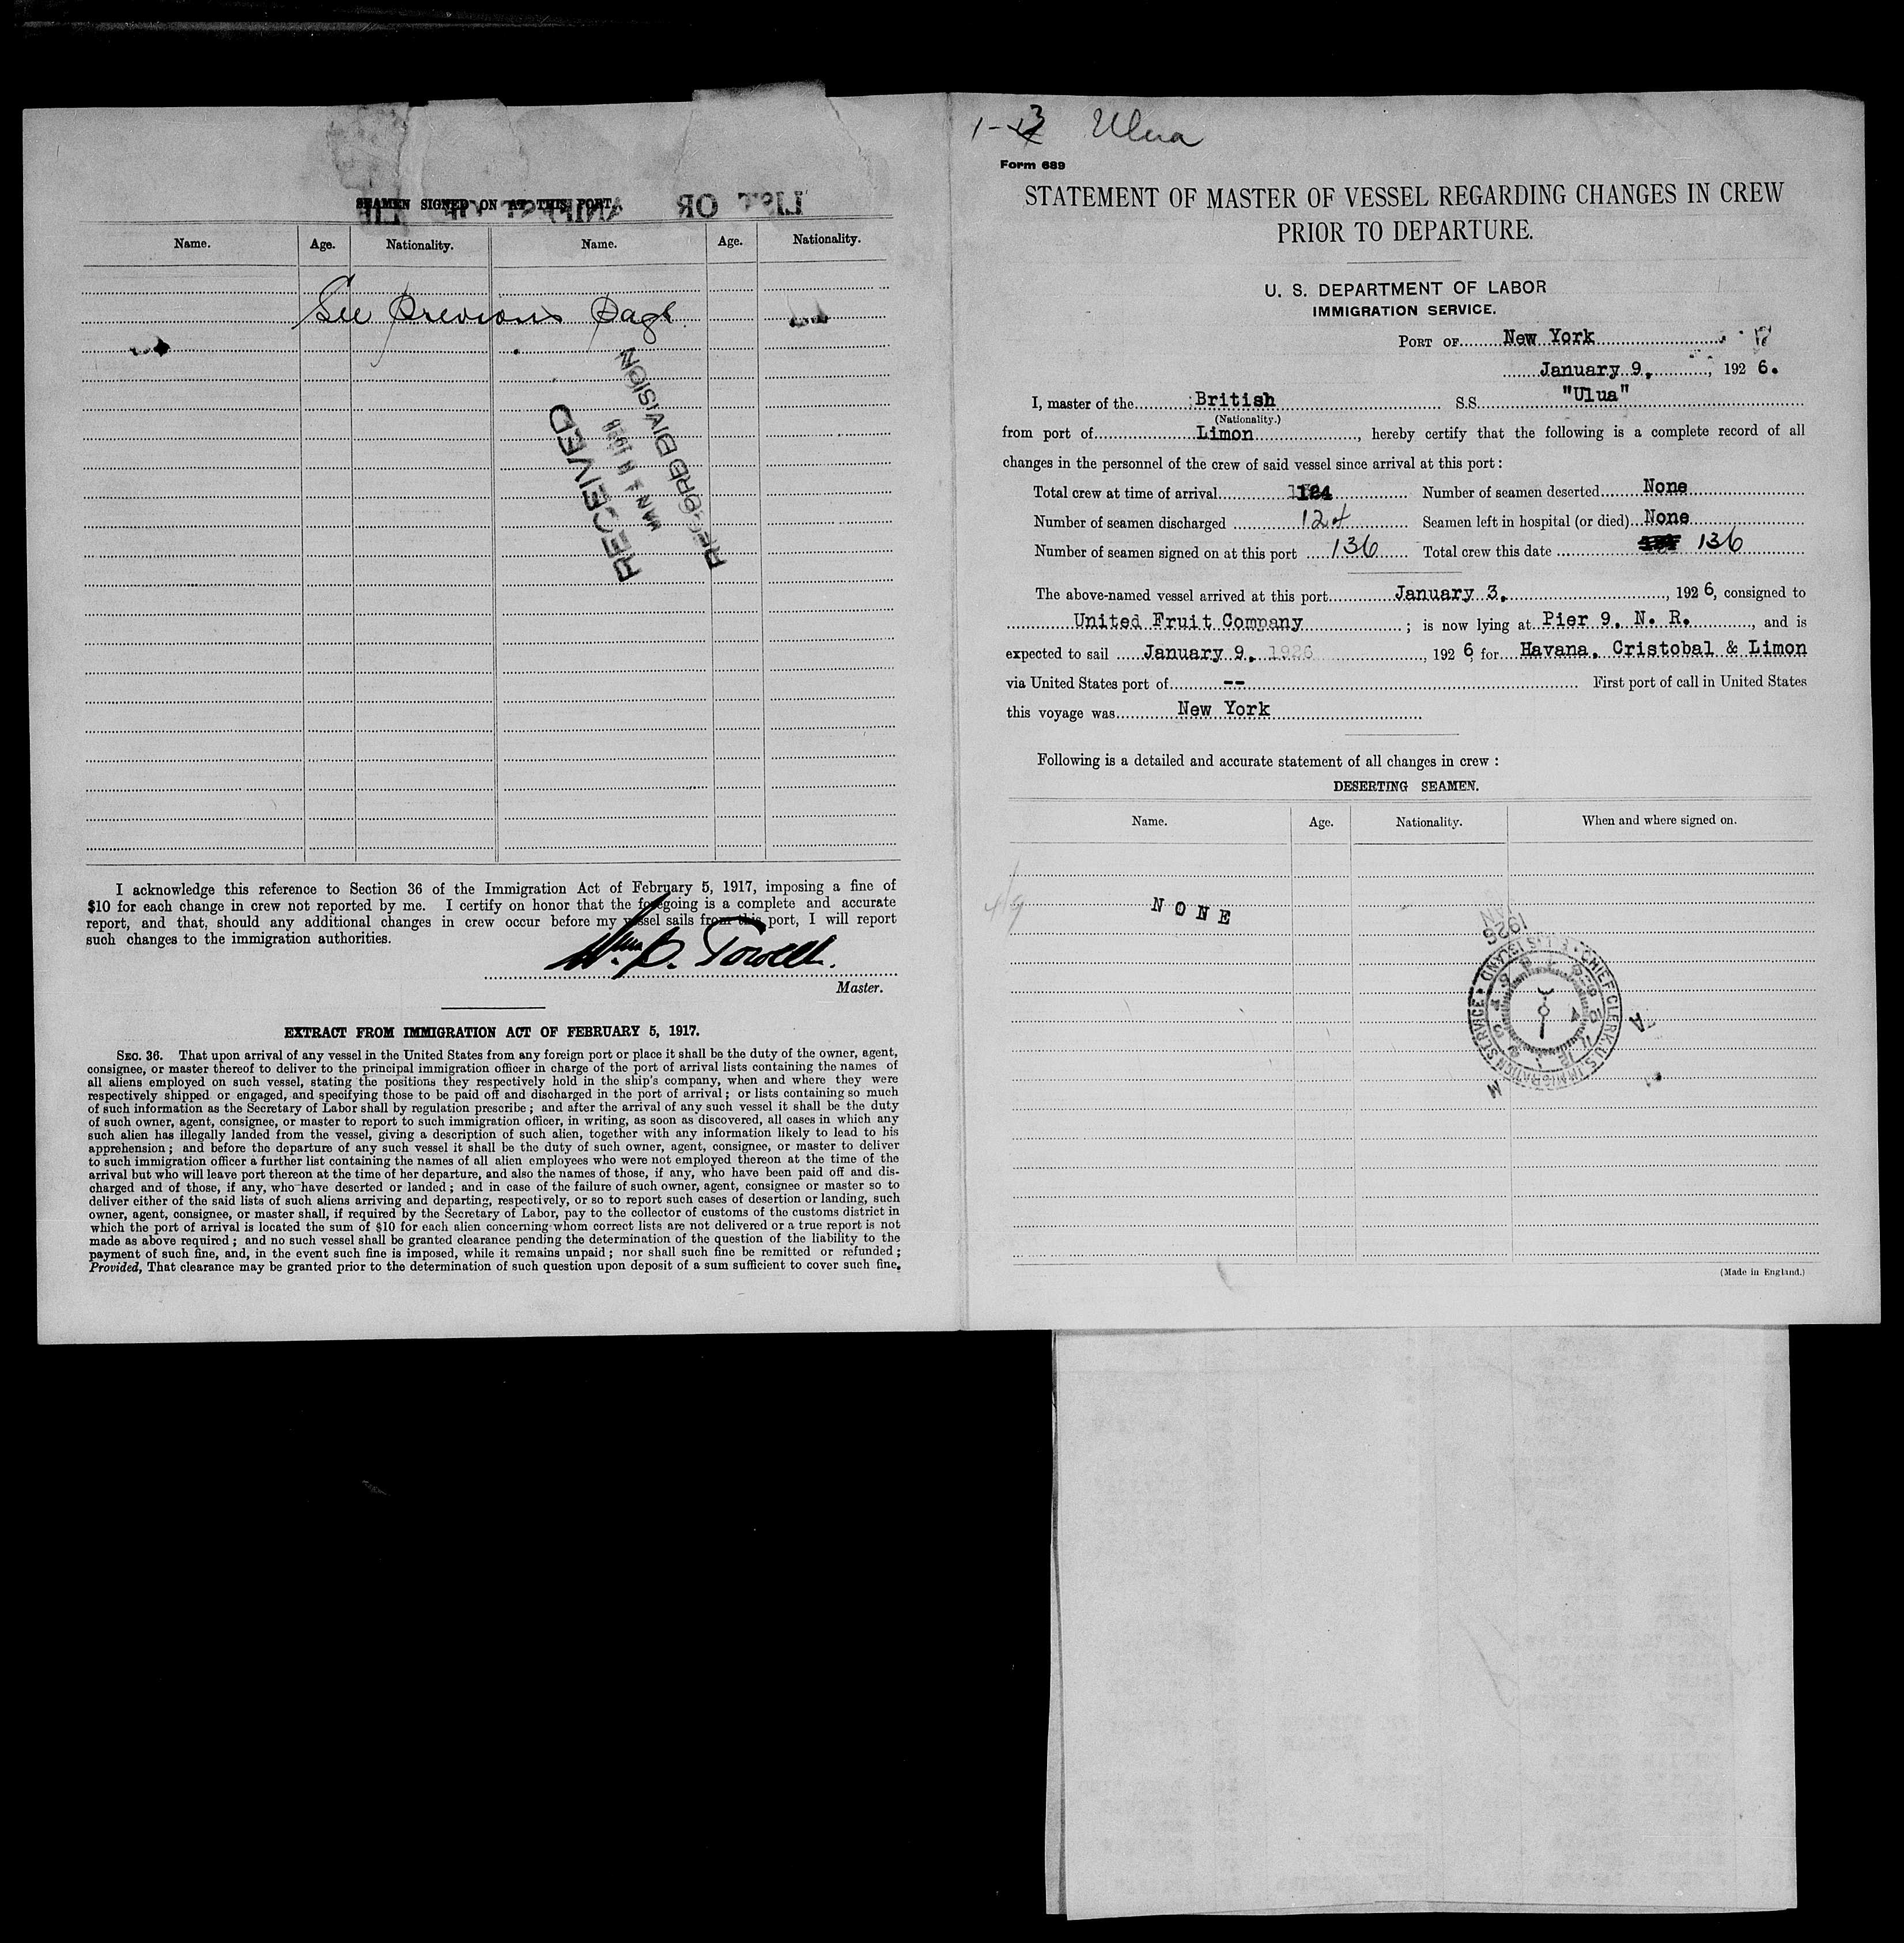 SEAMEN SIGNED ON AT THIS PORT.
Name. Age. Nationality. Name. Age. Nationality.
See previous page.
RECEIVED
RECORD DIVISION
I acknowledge this reference to Section 36 of the Immigration Act of February 5, 1917, imposing a fine of
$10 for each change in crew not reported by me. I certify on honor that the foregoing is a complete and accurate
report, and that, should any additional changes in crew occur before my vessel sails from this port, I will report
such changes to the immigration authorities.
Master.
EXTRACT FROM IMMIGRATION ACT OF FEBRUARY 5, 1917.
SEC. 36. That upon arrival of any vessel in the United States from any foreign port or place it shall be the duty of the owner, agent,
consignee, or master thereof to deliver to the principal immigration officer in charge of the port of arrival lists containing the names of
all aliens employed on such vessel, stating the positions they respectively hold in the ship's company, when and where they were
respectively shipped or engaged, and specifying those to be paid off and discharged in the port of arrival; or lists containing so much
of such information as the Secretary of Labor shall by regulation prescribe; and after the arrival of any such vessel it shall be the duty
of such owner, agent, consignee, or master to report to such immigration officer, in writing, as soon as discovered, all cases in which any
such alien has illegally landed from the vessel, giving a description of such alien, together with any information likely to lead to his
apprehension; and before the departure of any such vessel it shall be the duty of such owner, agent, consignee, or master to deliver
to such immigration officer a further list containing the names of all alien employees who were not employed thereon at the time of the
arrival but who will leave port thereon at the time of her departure, and also the names of those, if any, who have been paid off and dis-
charged and of those, if any, who have deserted or landed; and in case of the failure of such owner, agent, consignee or master so to
deliver either of the said lists of such aliens arriving and departing, respectively, or so to report such cases of desertion or landing, such
owner, agent, consignee, or master shall, if required by the Secretary of Labor, pay to the collector of customs of the customs district in
which the port of arrival is located the sum of $10 for each alien concerning whom correct lists are not delivered or a true report is not
made as above required; and no such vessel shall be granted clearance pending the determination of the question of the liability to the
payment of such fine, and, in the event such fine is imposed, while it remains unpaid; nor shall such fine be remitted or refunded;
Provided, That clearance may be granted prior to the determination of such question upon deposit of a sum sufficient to cover such fine.
1-3 Ulua
Form 689
STATEMENT OF MASTER OF VESSEL REGARDING CHANGES IN CREW
PRIOR TO DEPARTURE.
U. S. DEPARTMENT OF LABOR
IMMIGRATION SERVICE.
PORT OF New York
January 9, , 192 6.
I, master of the British S.S. "Ulua"
(Nationality.)
from port of Limon, hereby certify that the following is a complete record of all
changes in the personnel of the crew of said vessel since arrival at this port:
Total crew at time of arrival 124 Number of seamen deserted None
Number of seamen discharged 124 Seamen left in hospital (or died) None
Number of seamen signed on at this port 136 Total crew this date 136
The above-named vessel arrived at this port January 3, , 192 6, consigned to
United Fruit Company ; is now lying at Pier 9, N. R. , and is
expected to sail January 9, 1926 , 192 6 for Havana, Cristobal & Limon
via United States port of -- First port of call in United States
this voyage was New York
Following is a detailed and accurate statement of all changes in crew :
DESERTING SEAMEN.
Name. Age. Nationality. When and where signed on.
NONE
JAN
1926
CHIEF CLERK U.S. IMMIGRATION SERVICE
(Made in England.)